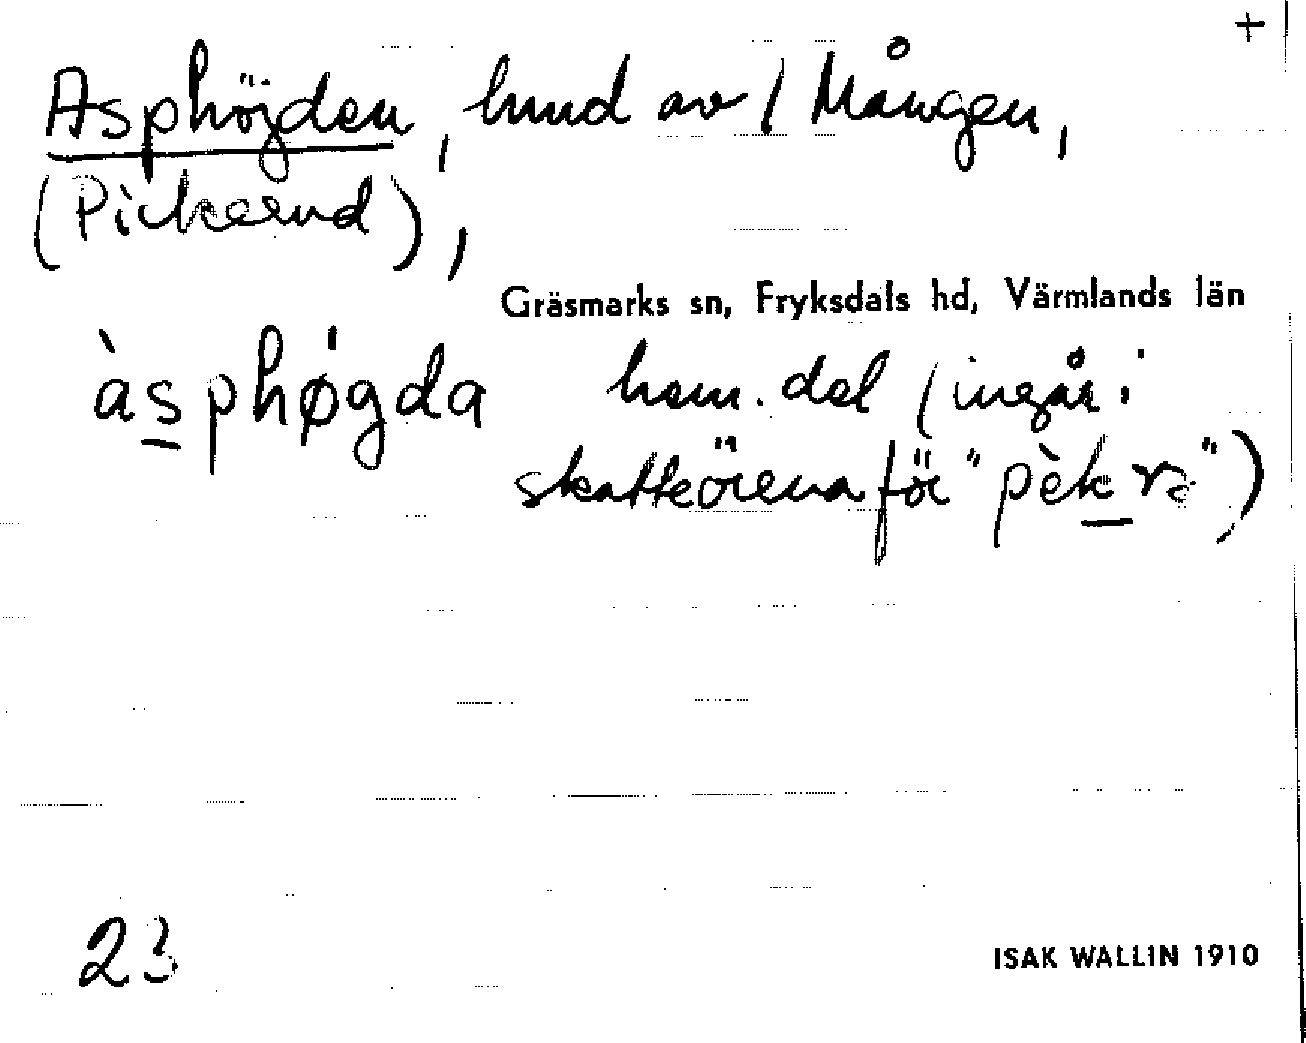 +
Asphöjden, hmd av 1 Mången,
(Pickerud),
Gräsmarks sn, Fryksdals hd, Värmlands län
àsphø̍gda hem. del (ingår i
skatteörena för "pèk rə")
23
ISAK WALLIN 1910